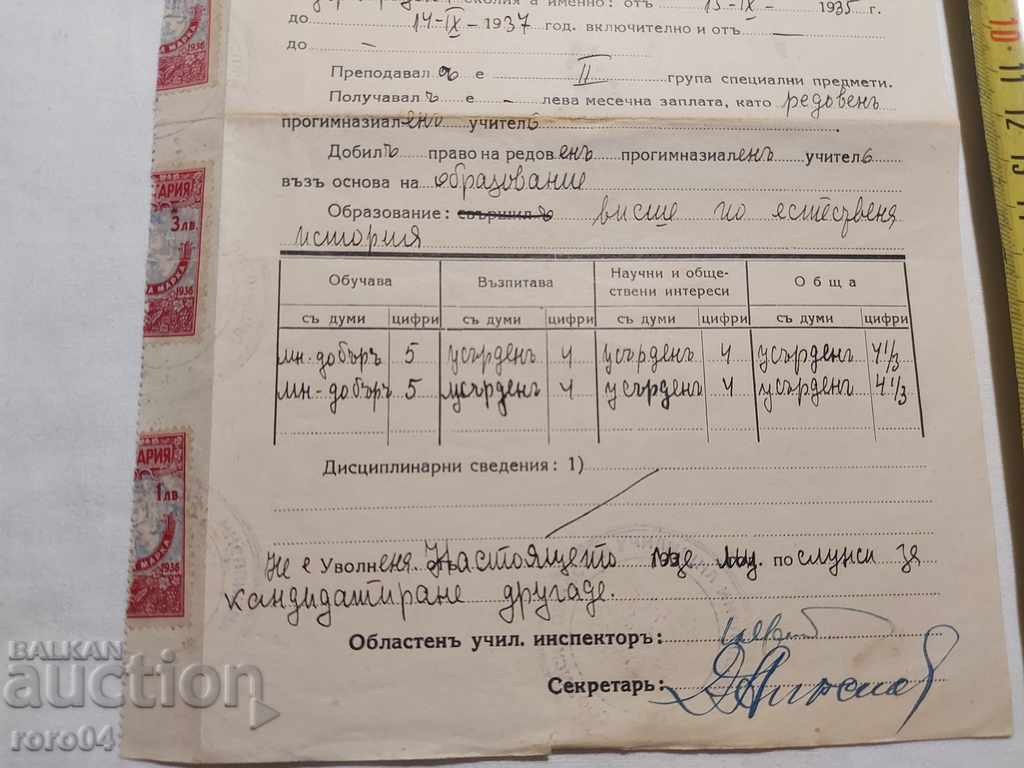 сколия а именно: отъ 15-IX- 1935 г.
до 14-IX-1937 год. включително и отъ —
до —
Преподавал е II група специални предмети.
Получавалъ е - лева месечна заплата, като редовенъ
прогимназиаленъ учитель
Добилъ право на редовенъ прогимназиаленъ учитель
възъ основа на образование
Образование: свършилъ висше по естествена
история
Обучава Възпитава Научни и обще-
ствени интереси Обща
съ думи цифри съ думи цифри съ думи цифри съ думи цифри
мн.добъръ 5 усърденъ 4 усърденъ 4 усърденъ 4 1/3
мн.-добъръ 5 усърденъ 4 усърденъ 4 усърденъ 4 1/3
Дисциплинарни сведения: 1)
Не е Уволненя. Настоящето по служи за
кандидатиране другаде.
Областенъ учил. инспекторъ:
Секретарь:
ТАРИЯ
3 лв.
МАРКА
1936
АРИЯ
1 лв
МАРКА
1936
МАРКА
1936
BALKAN
auction
roro04
10 11 12 13 14